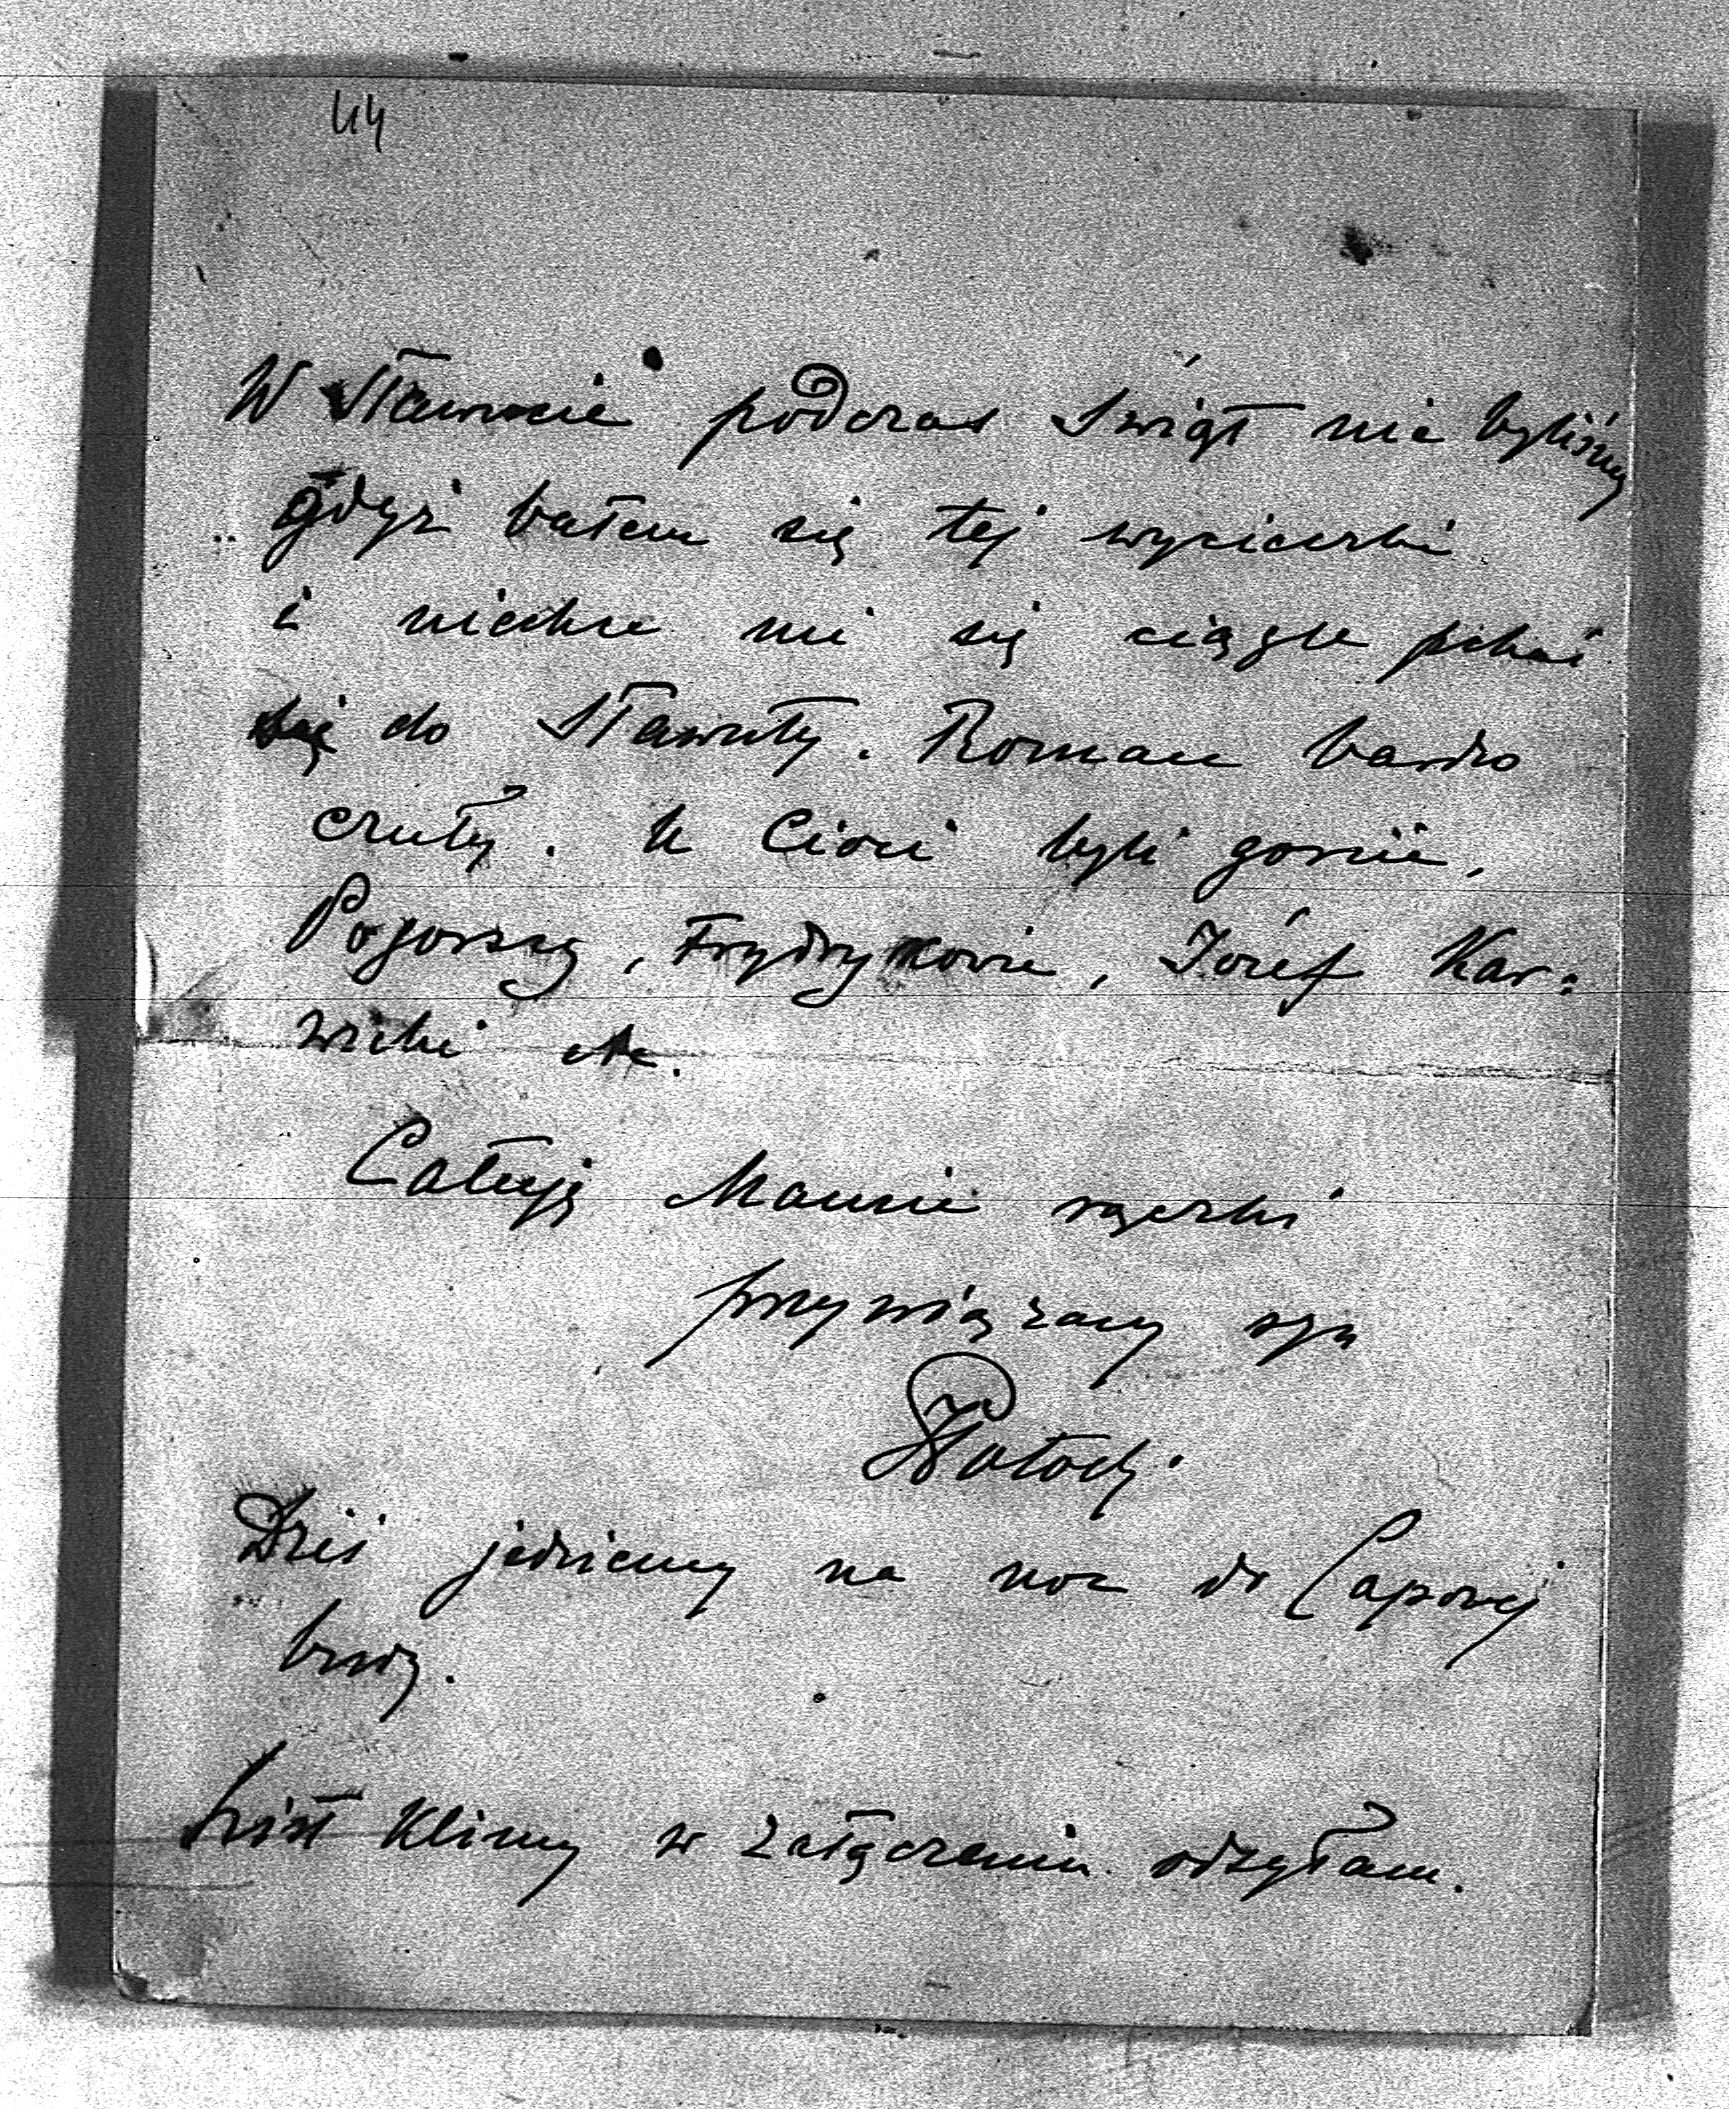 44
W Sławucie podczas Świąt nie byliśmy
gdyż bałem się tej wycieczki
i niechce mi się ciągle pchać
się do Sławuty. Roman bardzo
czuły. U Cioci byli goście,
Pogorscy, Frydrykowie, Józef Kar=
wicki etc.
Całuję Mamie rączki
przywiązany syn
Potocki
Dziś jedziemy na noc do Capowej
budy.
List Klimy w załączeniu odsyłam.